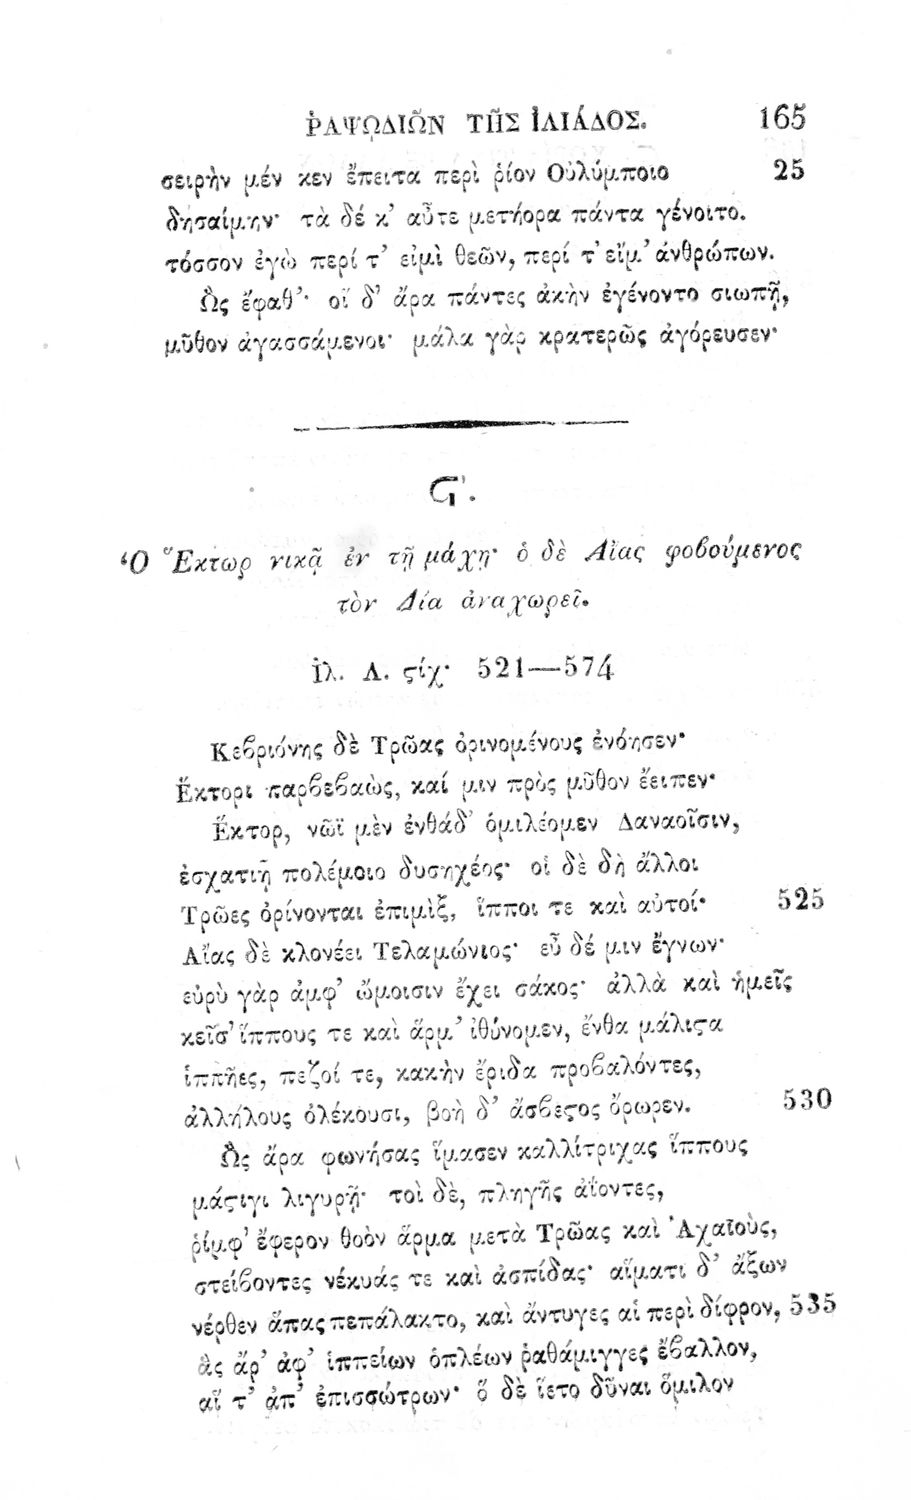 ῬΑΨῼΔΙῶΝ ΤῆΣ ἸΛΙΆΔΟΣ. 165
σειρὴν μέν κεν ἔπειτα περὶ ῥίον Οὐλύμποιο 25
δησαίμην· τὰ δέ κ’ αὖτε μετήορα πάντα γένοιτο.
τόσσον ἐγὼ περί τ’ εἰμὶ θεῶν, περί τ’ εἴμ’ ἀνθρώπων.
Ὣς ἔφαθ’· οἵ δ’ ἄρα πάντες ἀκὴν ἐγένοντο σιωπῇ,
μῦθον ἀγασσάμενοι· μάλα γὰρ κρατερῶς ἀγόρευσεν·
Ϛ'.
Ὁ Ἕκτωρ νικᾷ ἐν τῇ μάχῃ· ὁ δὲ Αἴας φοβούμενος
τὸν Δία ἀναχωρεῖ.
Ἰλ. Λ. ϛίχ· 521—574
Κεβριόνης δὲ Τρῶας ὀρινομένους ἐνόησεν·
Ἕκτορι παρβεβαὼς, καί μιν πρὸς μῦθον ἔειπεν·
Ἕκτορ, νῶϊ μὲν ἐνθάδ’ ὁμιλέομεν Δαναοῖσιν,
ἐσχατιῇ πολέμοιο δυσηχέος· οἱ δὲ δὴ ἄλλοι
Τρῶες ὀρίνονται ἐπιμὶξ, ἵπποι τε καὶ αὐτοί· 525
Αἴας δὲ κλονέει Τελαμώνιος· εὖ δέ μιν ἔγνων·
εὐρὺ γὰρ ἀμφ’ ὤμοισιν ἔχει σάκος· ἀλλὰ καὶ ἡμεῖς
κεῖσ’ ἵππους τε καὶ ἅρμ’ ἰθύνομεν, ἔνθα μάλιϛα
ἱππῆες, πεζοί τε, κακὴν ἔριδα προβαλόντες,
ἀλλήλους ὀλέκουσι, βοὴ δ’ ἄσβεϛος ὄρωρεν. 530
Ὣς ἄρα φωνήσας ἵμασεν καλλίτριχας ἵππους
μάϛιγι λιγυρῇ· τοὶ δὲ, πληγῆς ἀΐοντες,
ῥίμφ’ ἔφερον θοὸν ἅρμα μετὰ Τρῶας καὶ Ἀχαιοὺς,
στείβοντες νέκυάς τε καὶ ἀσπίδας· αἵματι δ’ ἄξων
νέρθεν ἅπας πεπάλακτο, καὶ ἄντυγες αἱ περὶ δίφρον, 535
ἃς ἄρ’ ἀφ’ ἱππείων ὁπλέων ῥαθάμιγγες ἔβαλλον,
αἵ τ’ ἀπ’ ἐπισσώτρων· ὅ δὲ ἵετο δῦναι ὅμιλον